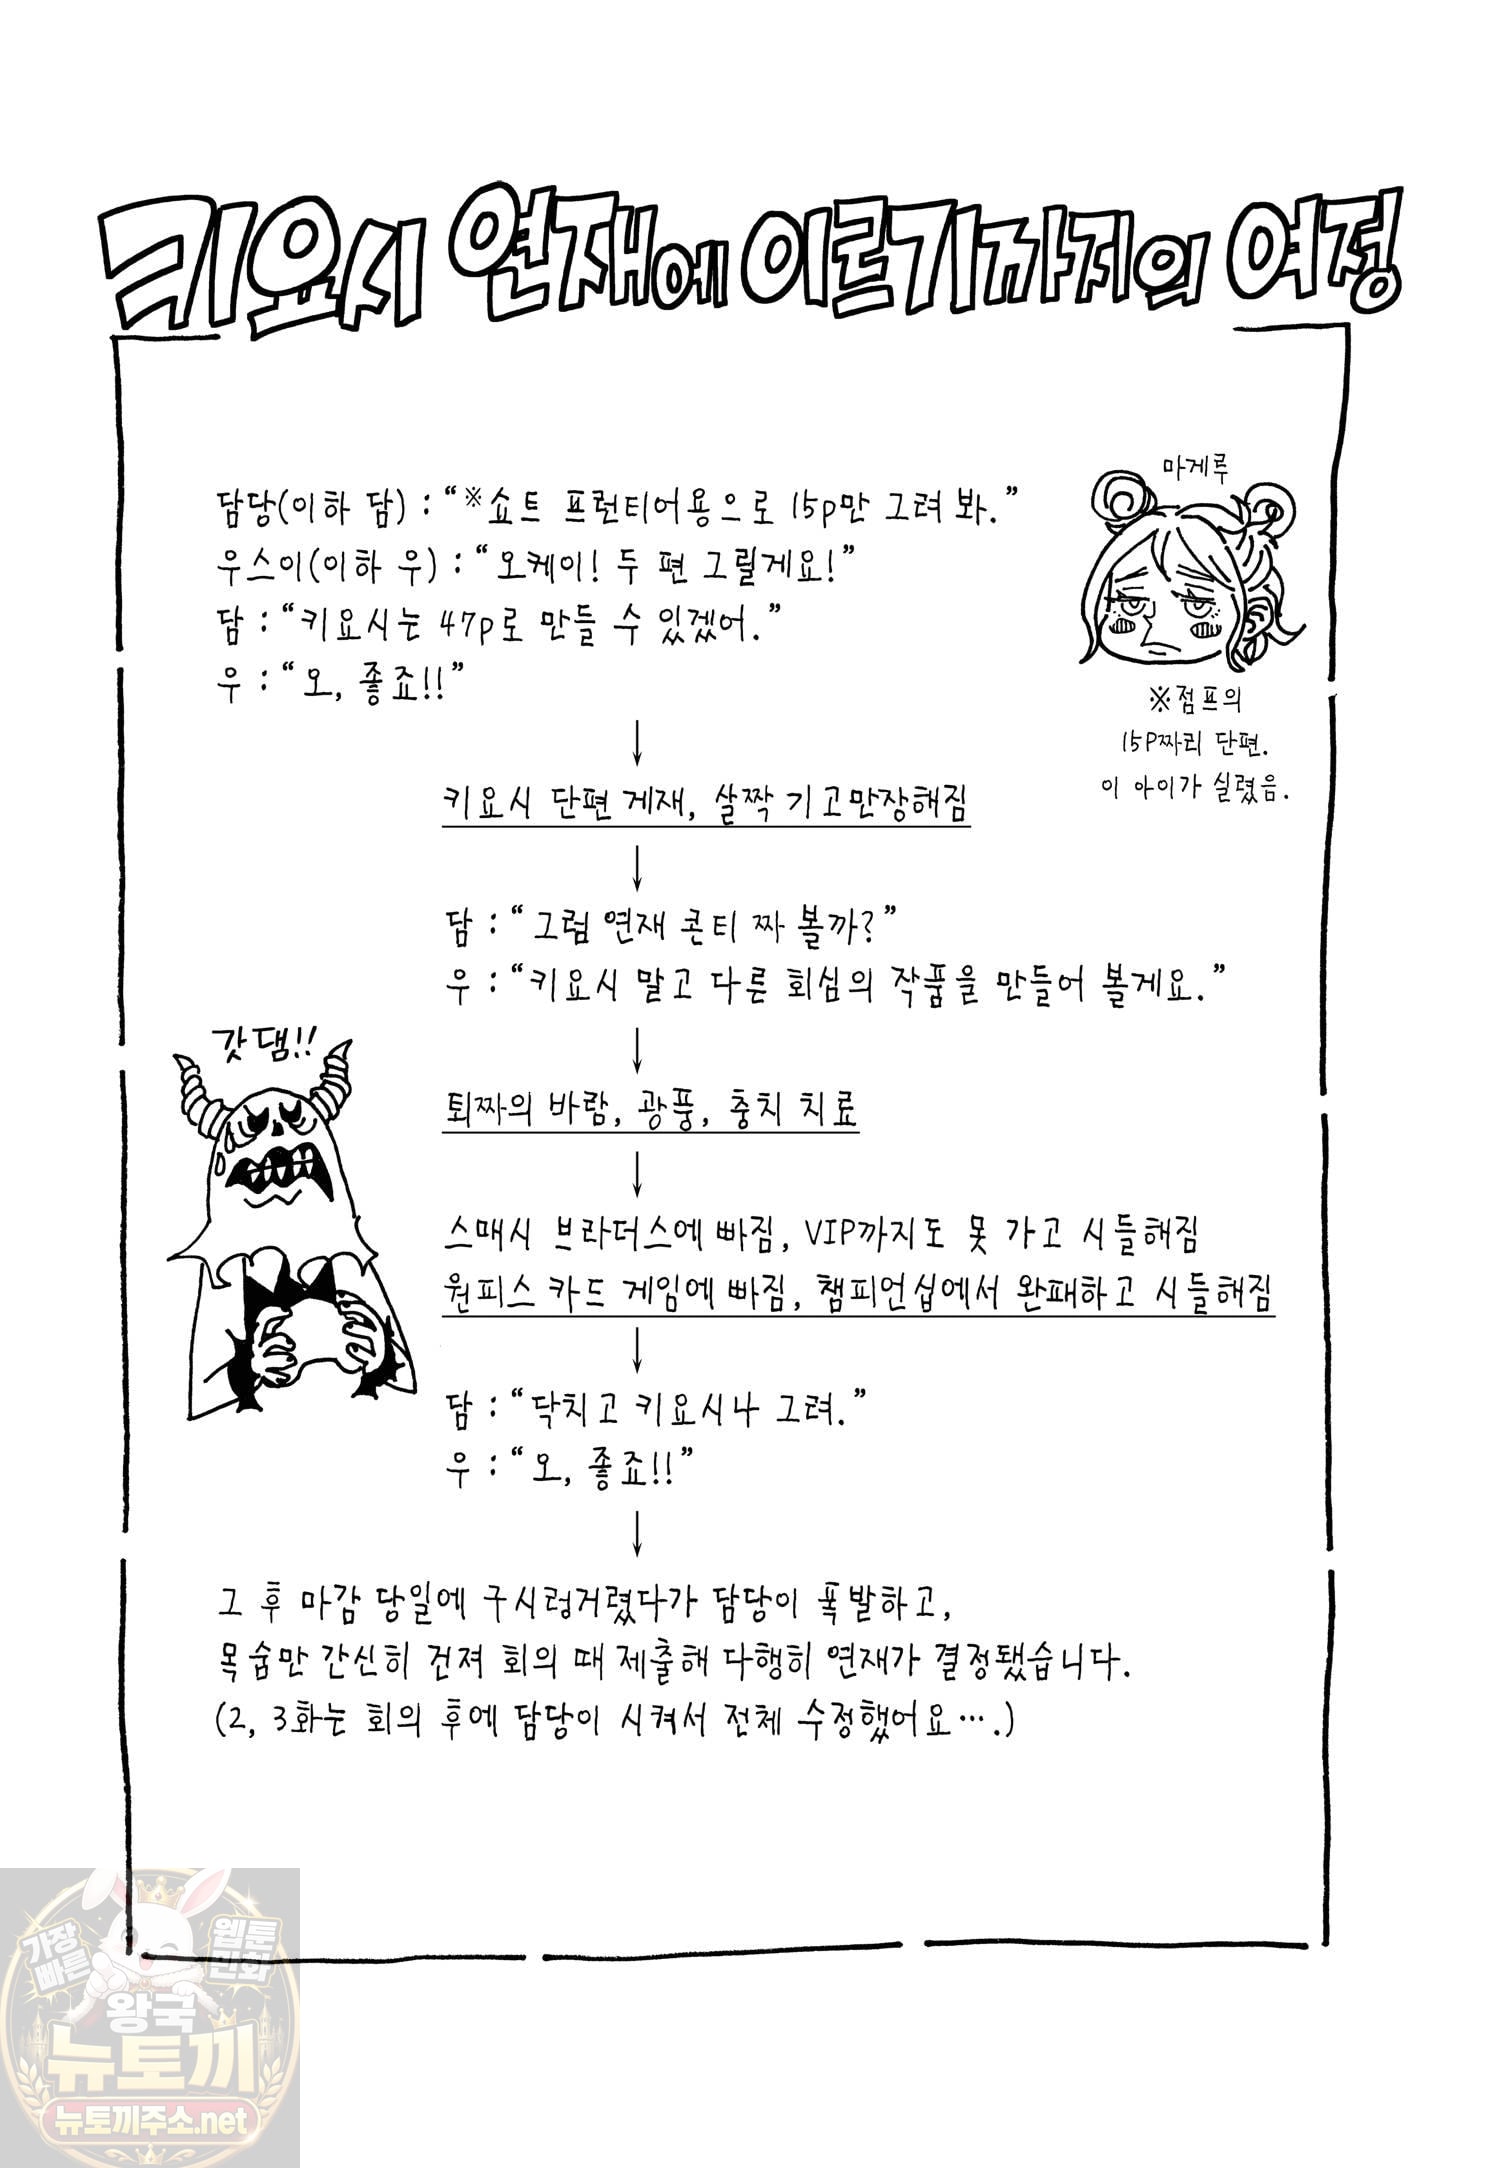 키요시 연재에 이르기까지의 여정
담당(이하 담) : “※쇼트 프런티어용으로 15p만 그려 봐.”
우스이(이하 우) : “오케이! 두 편 그릴게요!”
담 : “키요시는 47p로 만들 수 있겠어.”
우 : “오, 좋죠!!”
마게루
※점프의
15P짜리 단편.
이 아이가 실렸음.
↓
키요시 단편 게재, 살짝 기고만장해짐
↓
담 : “그럼 연재 콘티 짜 볼까?”
우 : “키요시 말고 다른 회심의 작품을 만들어 볼게요.”
↓
갓댐!!
퇴짜의 바람, 광풍, 충치 치료
↓
스매시 브라더스에 빠짐, VIP까지도 못 가고 시들해짐
원피스 카드 게임에 빠짐, 챔피언십에서 완패하고 시들해짐
↓
담 : “닥치고 키요시나 그려.”
우 : “오, 좋죠!!”
↓
그 후 마감 당일에 구시렁거렸다가 담당이 폭발하고,
목숨만 간신히 건져 회의 때 제출해 다행히 연재가 결정됐습니다.
(2, 3화는 회의 후에 담당이 시켜서 전체 수정했어요….)
가장 빠른
웹툰 만화
왕국
뉴토끼
뉴토끼주소.net